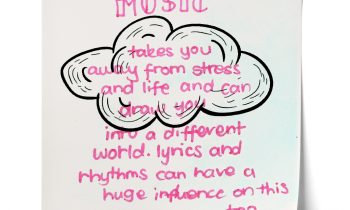 MUSIC
takes you
away from stress
and life and can
draw you
into a different
world. lyrics and
rhythms can have a
huge influence on this
too